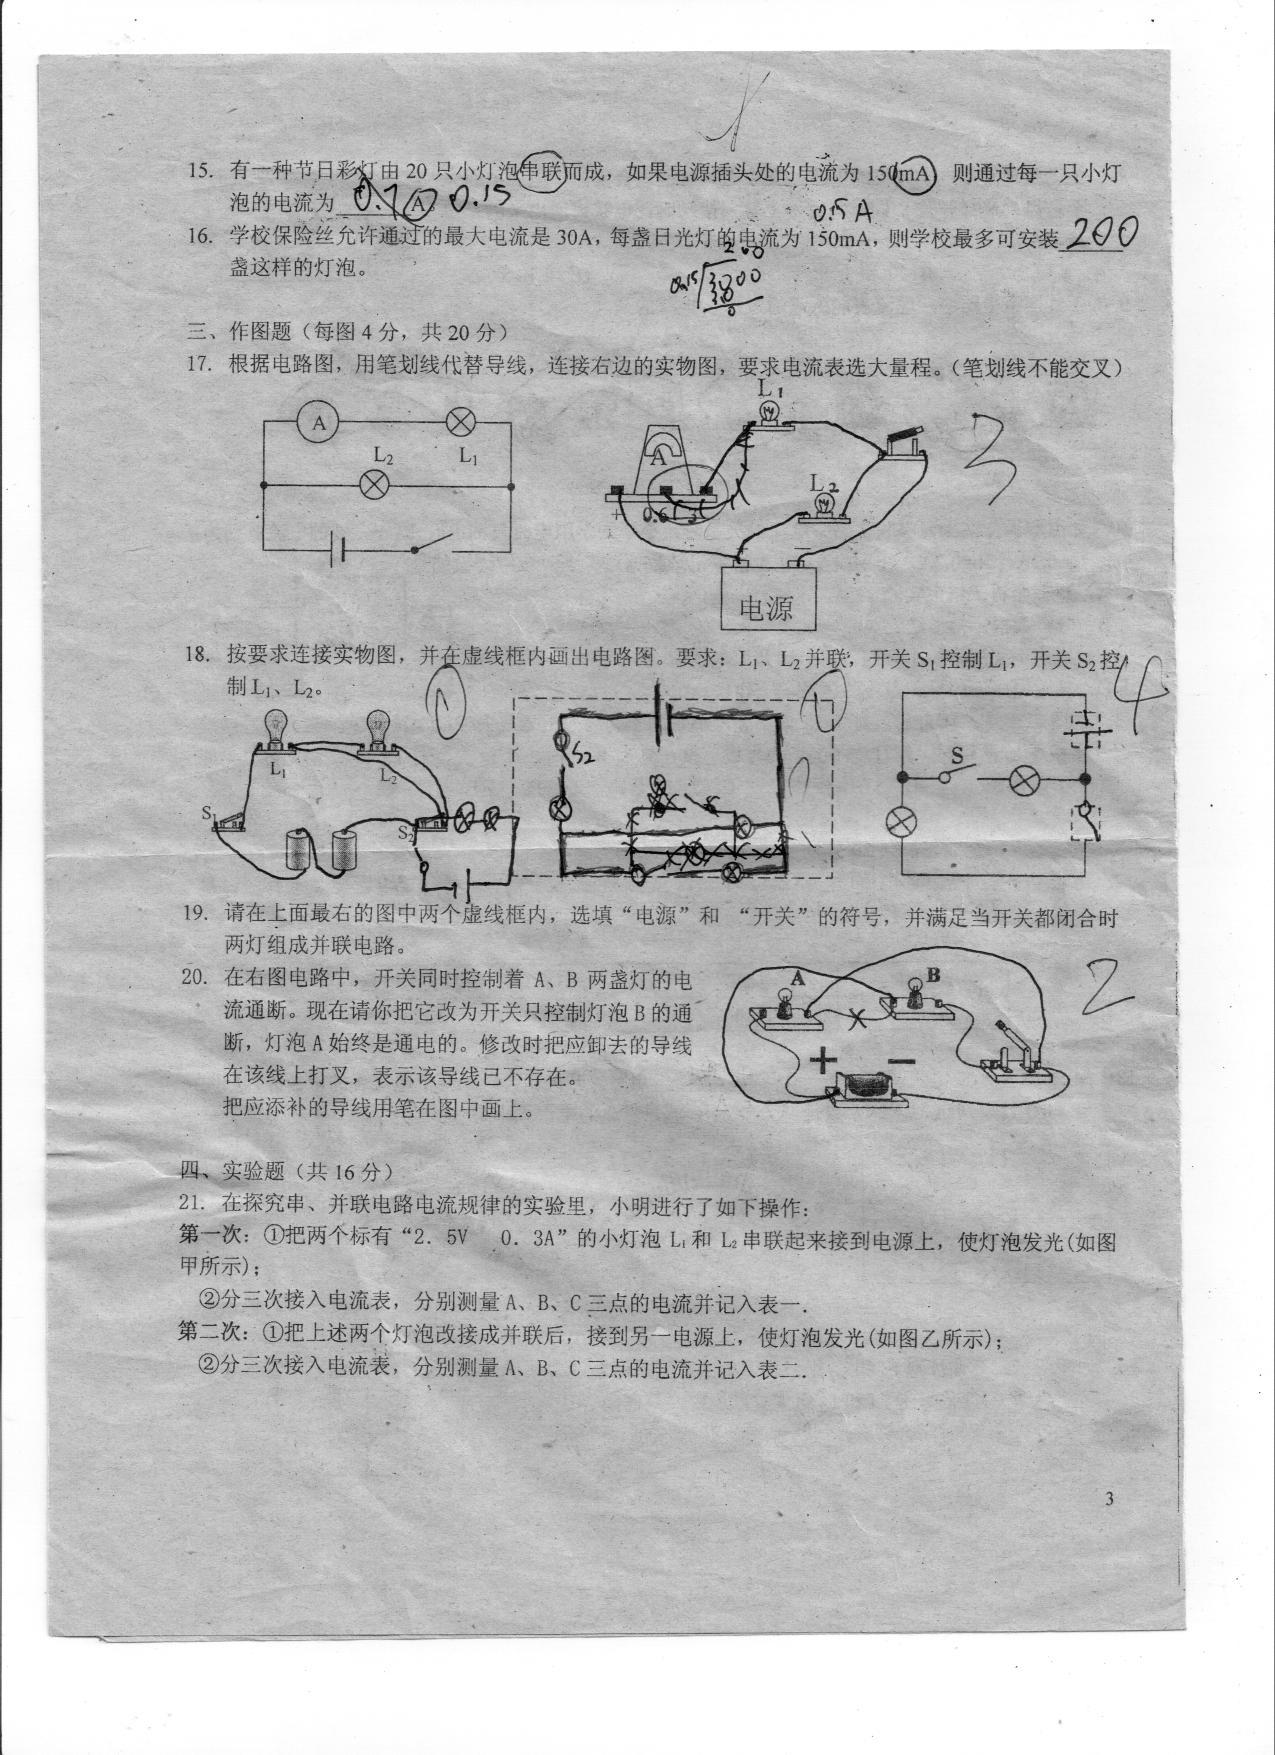 15. 有一种节日彩灯由 20 只小灯泡串联而成，如果电源插头处的电流为 150mA 则通过每一只小灯
泡的电流为 A。 0.15
0.15A
16. 学校保险丝允许通过的最大电流是 30A，每盏日光灯的电流为 150mA，则学校最多可安装 200
盏这样的灯泡。
200
0.15
三、作图题（每图 4 分，共 20 分）
17. 根据电路图，用笔划线代替导线，连接右边的实物图，要求电流表选大量程。（笔划线不能交叉）
A L2 L1
L1 A L2 3
+ 0.6 3
+ −
电源
18. 按要求连接实物图，并在虚线框内画出电路图。要求：L1、L2 并联，开关 S1 控制 L1，开关 S2 控
制 L1、L2。
4
L1 L2 S1 S2
S2
S
19. 请在上面最右的图中两个虚线框内，选填“电源”和 “开关”的符号，并满足当开关都闭合时
两灯组成并联电路。
20. 在右图电路中，开关同时控制着 A、B 两盏灯的电
流通断。现在请你把它改为开关只控制灯泡 B 的通
断，灯泡 A 始终是通电的。修改时把应卸去的导线
在该线上打叉，表示该导线已不存在。
把应添补的导线用笔在图中画上。
A B 2
+ −
四、实验题（共 16 分）
21. 在探究串、并联电路电流规律的实验里，小明进行了如下操作：
第一次：①把两个标有“2．5V 0．3A”的小灯泡 L1 和 L2 串联起来接到电源上，使灯泡发光(如图
甲所示)；
②分三次接入电流表，分别测量 A、B、C 三点的电流并记入表一．
第二次：①把上述两个灯泡改接成并联后，接到另一电源上，使灯泡发光(如图乙所示)；
②分三次接入电流表，分别测量 A、B、C 三点的电流并记入表二．
3